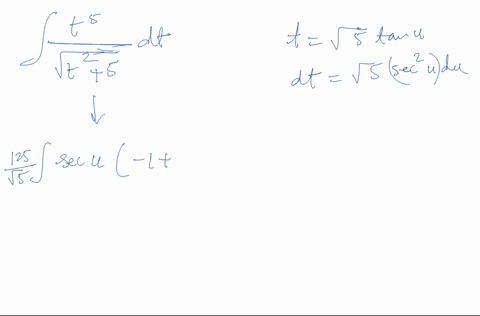 ∫ t^5/√(t^2+5) dt
t = √5 tan u
dt = √5 (sec^2 u) du
↓
125/√5 ∫ sec u (-1+